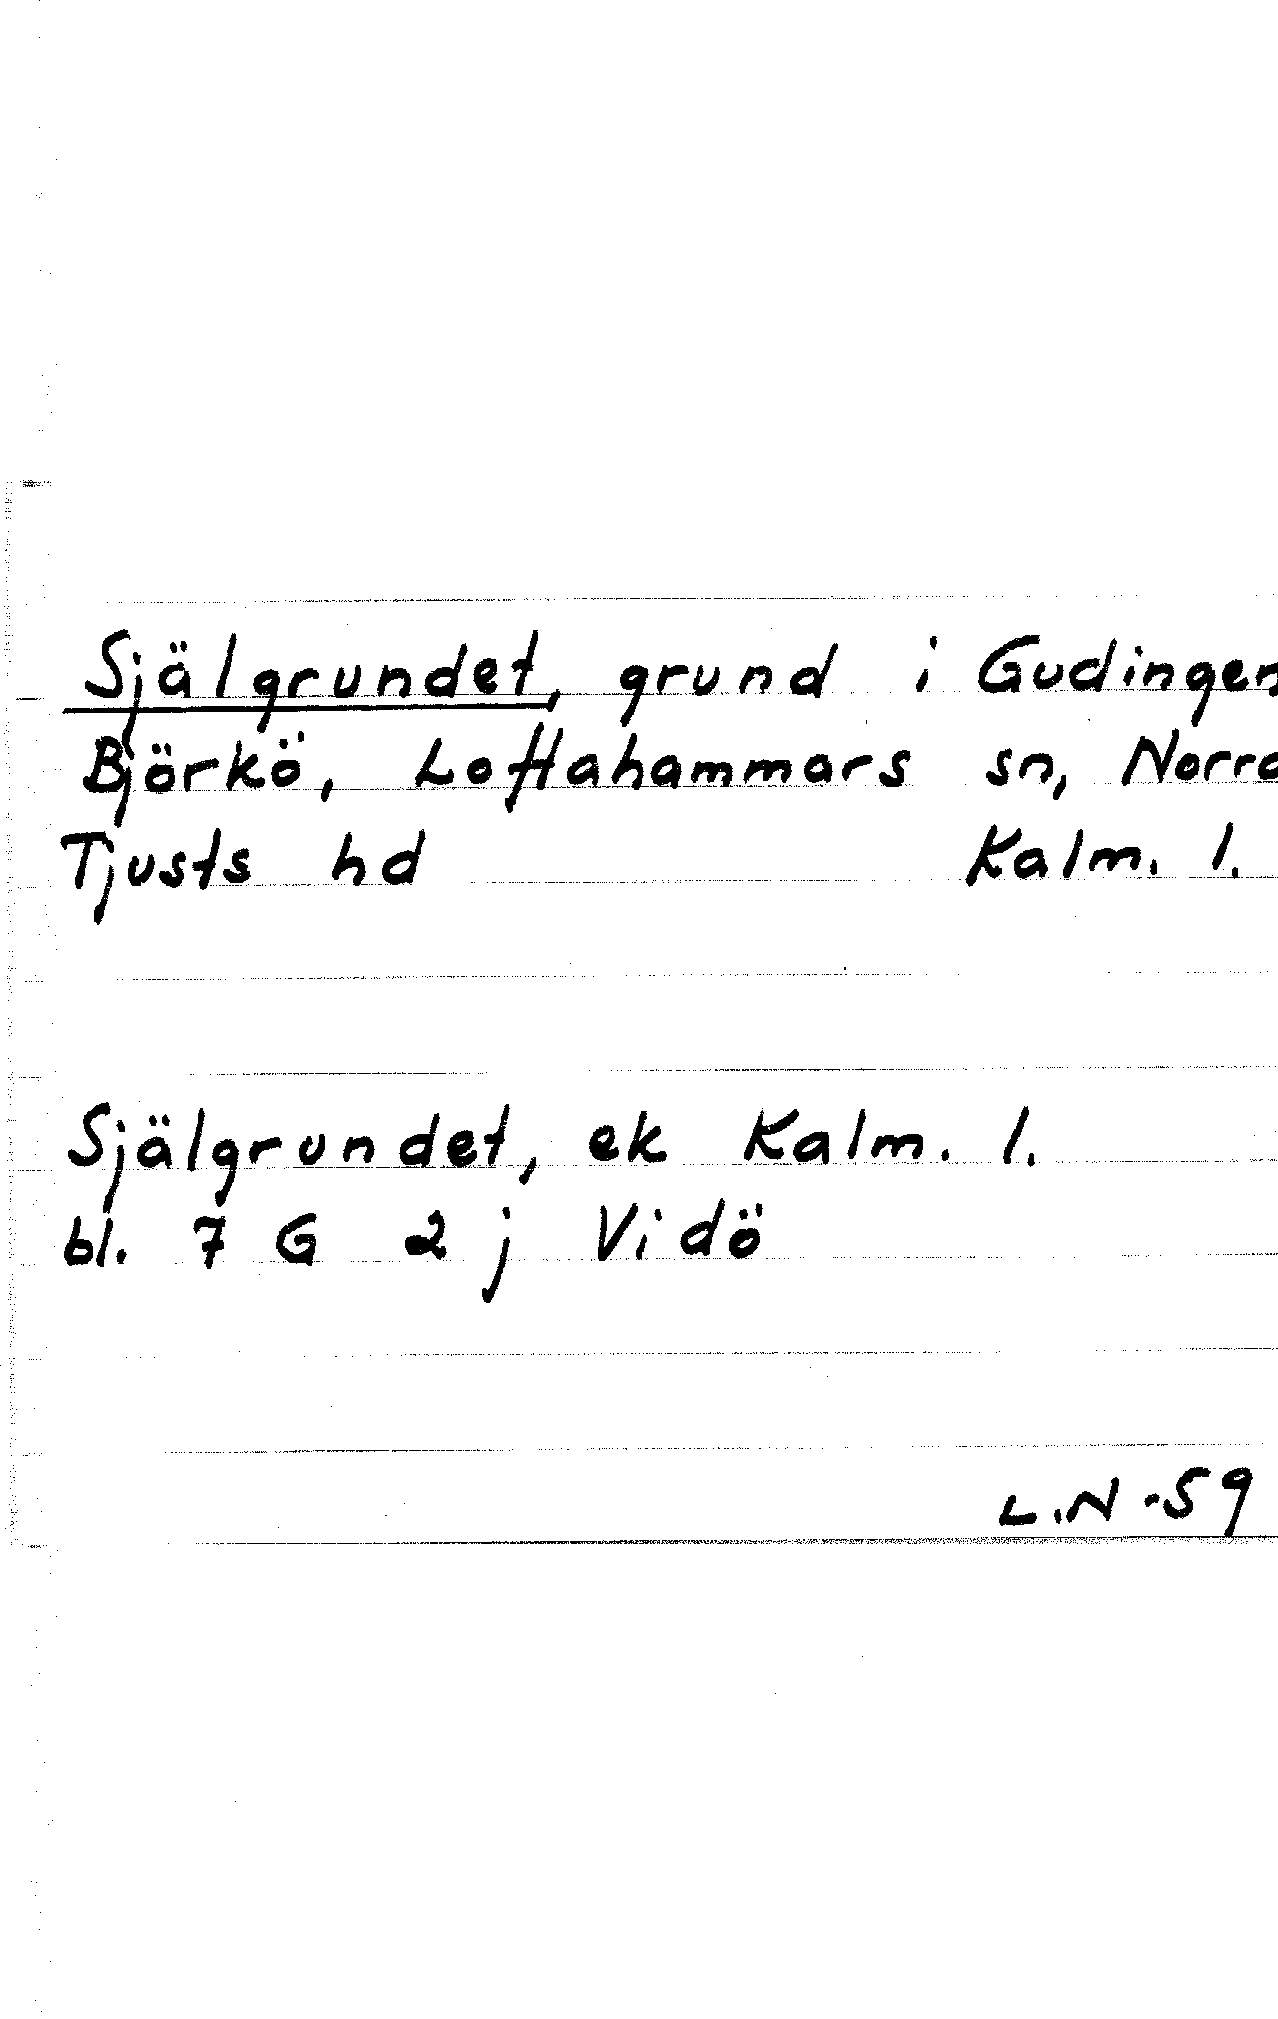 Själgrundet, grund i Gudingen
Björkö, Loftahammars sn, Norra
Tjusts hd Kalm. l.
Själgrundet, ek Kalm. l.
bl. 7 G 2 j Vidö
L.N -59